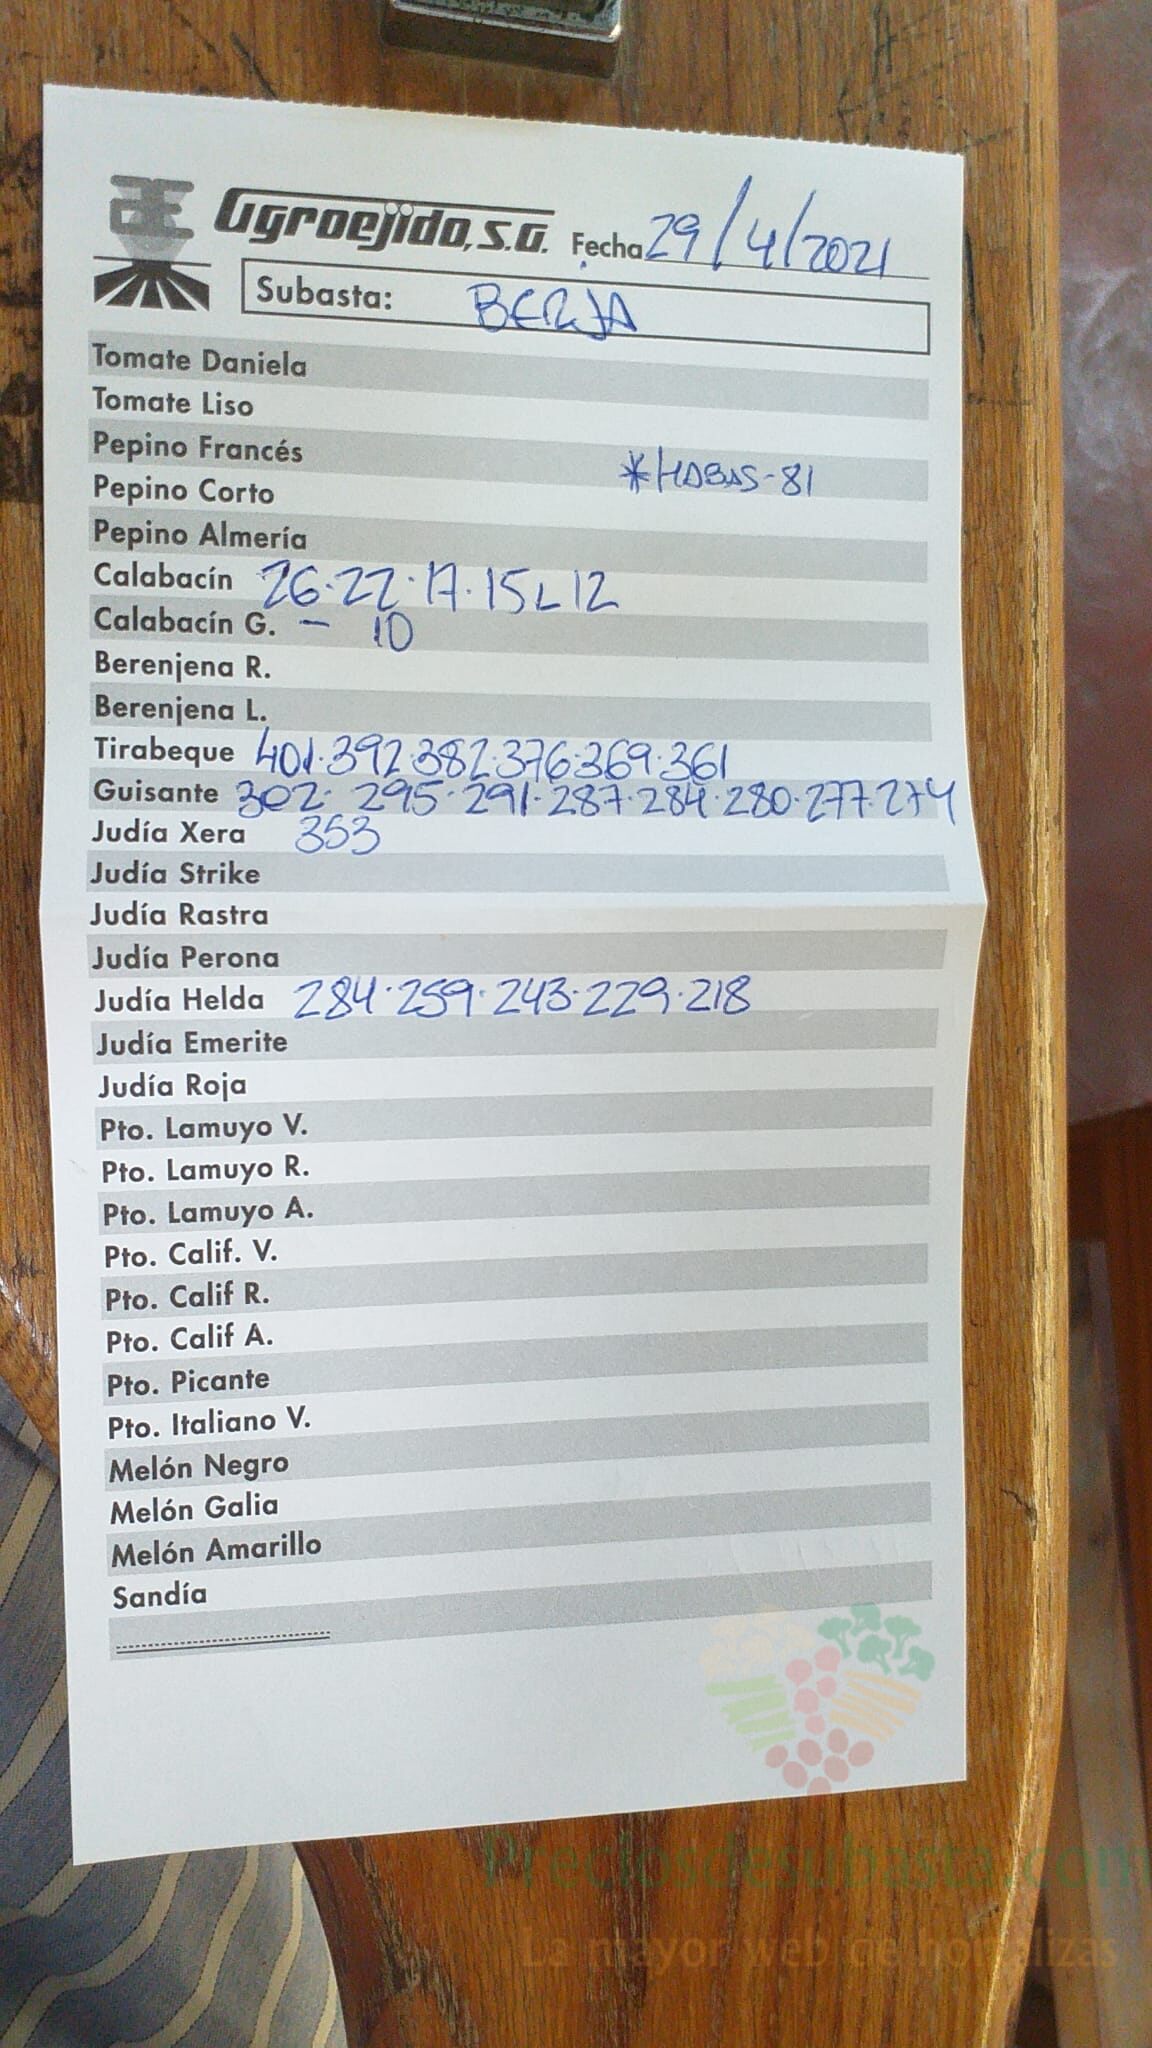 Agroejido, S.A. Fecha 29/4/2021
Subasta: BERJA
Tomate Daniela
Tomate Liso
Pepino Francés
*HABAS-81
Pepino Corto
Pepino Almería
Calabacín 26·22·17·15L12
Calabacín G. - 10
Berenjena R.
Berenjena L.
Tirabeque 401·392·382·376·369·361
Guisante 302·295·291·287·284·280·277·274
Judía Xera 353
Judía Strike
Judía Rastra
Judía Perona
Judía Helda 284·259·243·229·218
Judía Emerite
Judía Roja
Pto. Lamuyo V.
Pto. Lamuyo R.
Pto. Lamuyo A.
Pto. Calif. V.
Pto. Calif R.
Pto. Calif A.
Pto. Picante
Pto. Italiano V.
Melón Negro
Melón Galia
Melón Amarillo
Sandía
Preciosdesubasta.com
La mayor web de hortalizas